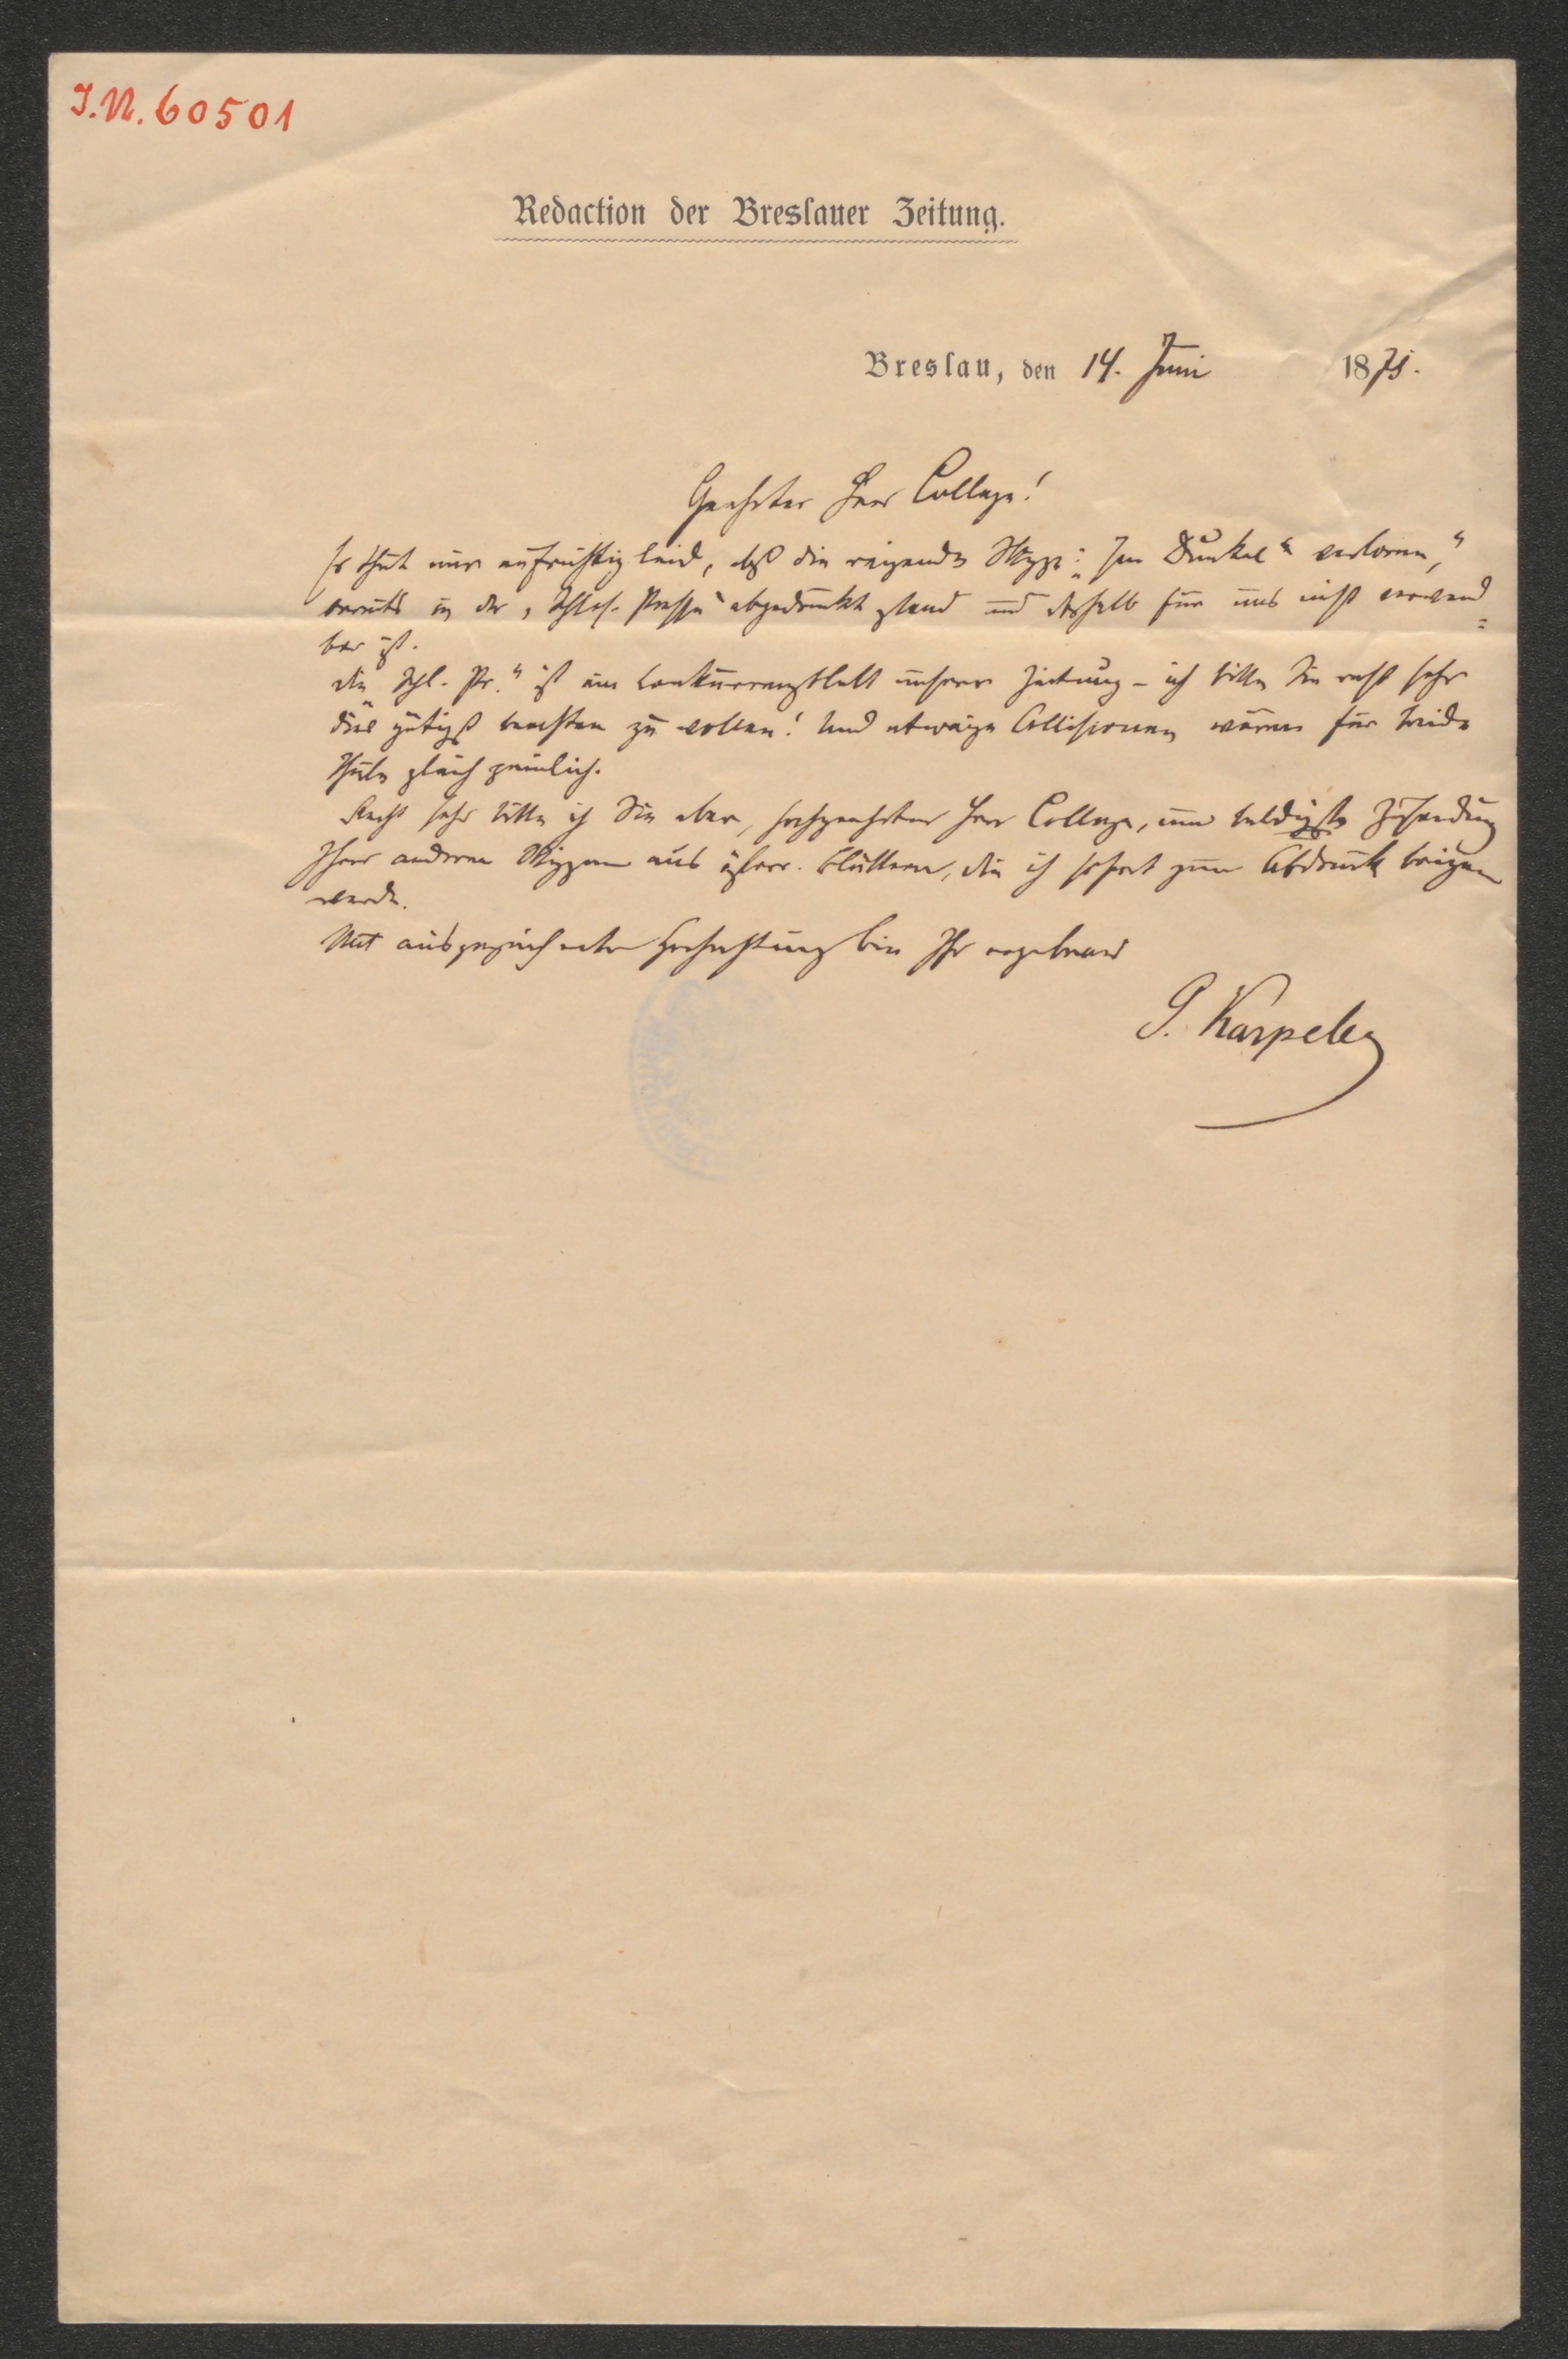 J.N. 60501
Redaction der Breslauer Zeitung.
Breslau, den 14. Juni 1875.
Geehrter Herr College!
Es thut mir aufrichtig leid, daß die reizende Skizze: „Im Dunkel“ verloren,“
bereits in der „Schles. Presse“ abgedruckt stand und deshalb für uns nicht verwend=
bar ist.
die „Schl. Pr.“ ist ein Conkurrenzblatt unserer Zeitung – ich bitte Sie recht sehr
dies gütigst beachten zu wollen! Und etwaige Collisionen wären für beide
Theile gleich peinlich.
Recht sehr bitte ich Sie aber, hochgeehrter Herr College, um baldigste Zusendung
Ihrer anderen Skizzen aus österr. Blättern, die ich sofort zum Abdruck bringen
werde.
Mit ausgezeichneter Hochachtung bin Ihr ergebener
G. Karpeles